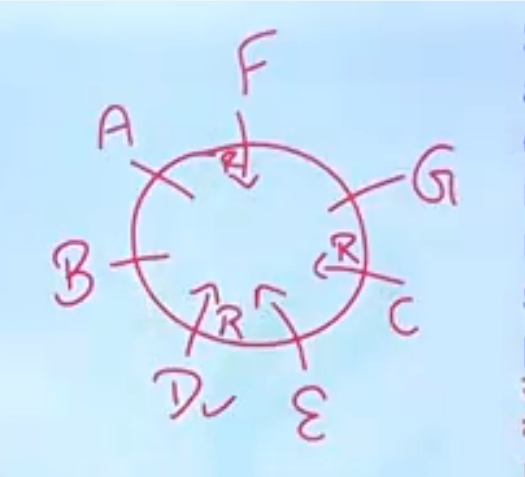 F
A
R
G
B
R
C
R
D
E